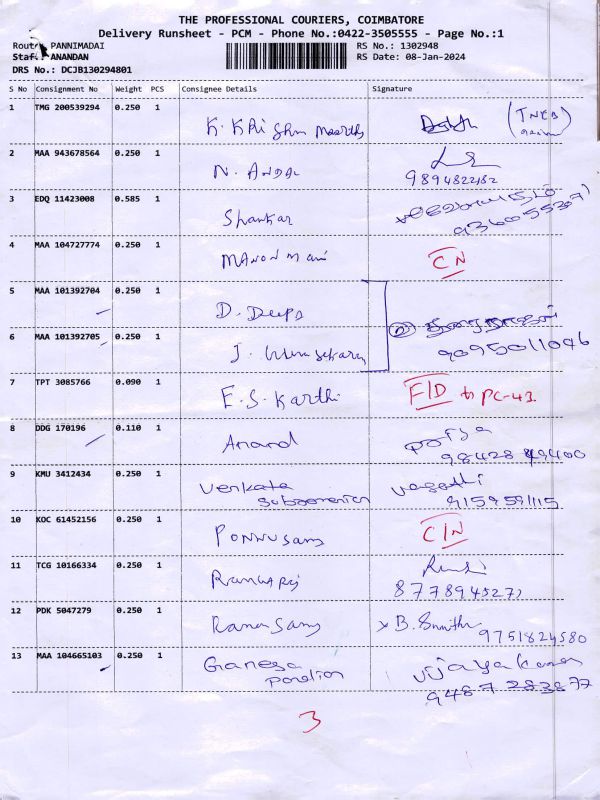 THE PROFESSIONAL COURIERS, COIMBATORE
Delivery Runsheet - PCM - Phone No.:0422-3505555 - Page No.:1
Route: PANNIMADAI
RS No.: 1302948
Staf.: ANANDAN
RS Date: 08-Jan-2024
DRS No.: DCJB130294801
S No Consignment No Weight PCS Consignee Details Signature
1 TMG 200539294 0.250 1 (TNEB
2 MAA 943678564 0.250 1 N. ANDAL
3 EDQ 11423008 0.585 1 Shankar
4 MAA 104727774 0.250 1 MANON Mani CN
5 MAA 101392704 0.250 1 D. Deepa
6 MAA 101392705 0.250 1 J. 9095011046
7 TPT 3085766 0.090 1 E.S. Karthi F/D to PC-43.
8 DDG 170196 0.110 1 Anand
9 KMU 3412434 0.250 1 Venkata vasathi
9159591115
10 KOC 61452156 0.250 1 PONNUSamy C/N
11 TCG 10166334 0.250 1 Ramaraj
8778945271
12 PDK 5047279 0.250 1 Rama Samy x B. Smitha
9751824580
13 MAA 104665103 0.250 1 Ganesa Vijayakumar
Pandian 9487283877
3